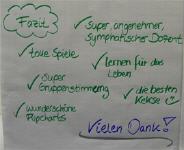 Fazit
✓ Super, angenehmer,
sympathischer Dozent
✓ tolle Spiele
✓ lernen für das
Leben
✓ Super
Gruppenstimmung
✓ die besten
Kekse ☺
✓ wunderschöne
Flipcharts
Vielen Dank!